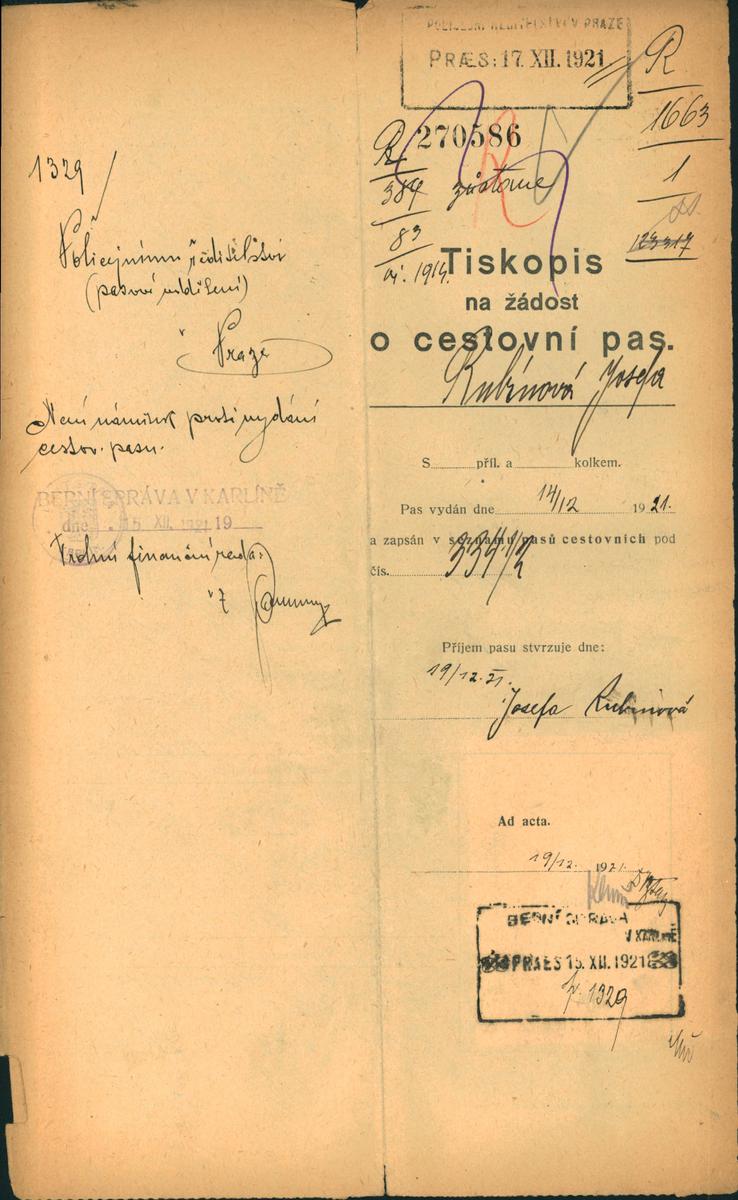 1329
Policejnímu ředitelství
(pasové oddělení)
v
Praze
Není námitek proti vydání
cestov. pasu.
BERNÍ SPRÁVA V KARLÍNĚ
dne 15. XII. 1921 19
Vrchní finanční rada:
POLICEJNÍ ŘEDITELSTVÍ V PRAZE
PRÆS: 17. XII. 1921
R
1663
1
270586
R
384
83
zůstane
1914.
Tiskopis
na žádost
o cestovní pas.
Rubínová Josefa
S příl. a kolkem.
Pas vydán dne 14/12 1921.
a zapsán v seznamu pasů cestovních pod
čís.
Příjem pasu stvrzuje dne:
19/12. 21.
Josefa Rubínová
Ad acta.
19/12. 1921.
BERNÍ SPRÁVA
V KARLÍNĚ
PRAES 15. XII. 1921
1329